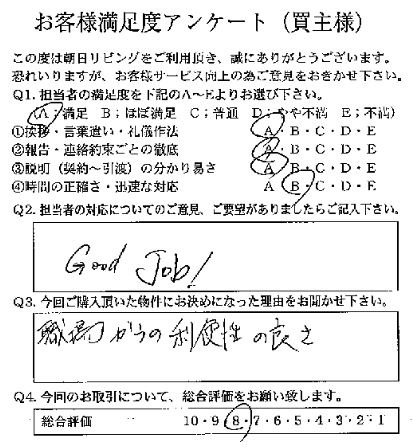 お客様満足度アンケート（買主様）
この度は朝日リビングをご利用頂き、誠にありがとうございます。
恐れいりますが、お客様サービス向上の為ご意見をおきかせ下さい。
Q1. 担当者の満足度を下記のA～Eよりお選び下さい。
（A；満足 B；ほぼ満足 C；普通 D；やや不満 E；不満）
①挨拶・言葉遣い・礼儀作法 A・B・C・D・E
②報告・連絡約束ごとの徹底 A・B・C・D・E
③説明（契約～引渡）の分かり易さ A・B・C・D・E
④時間の正確さ・迅速な対応 A・B・C・D・E
Q2. 担当者の対応についてのご意見、ご要望がありましたらご記入下さい。
Good Job!
Q3. 今回ご購入頂いた物件にお決めになった理由をお聞かせ下さい。
職場からの利便性の良さ
Q4. 今回のお取引について、総合評価をお願い致します。
総合評価 10・9・8・7・6・5・4・3・2・1